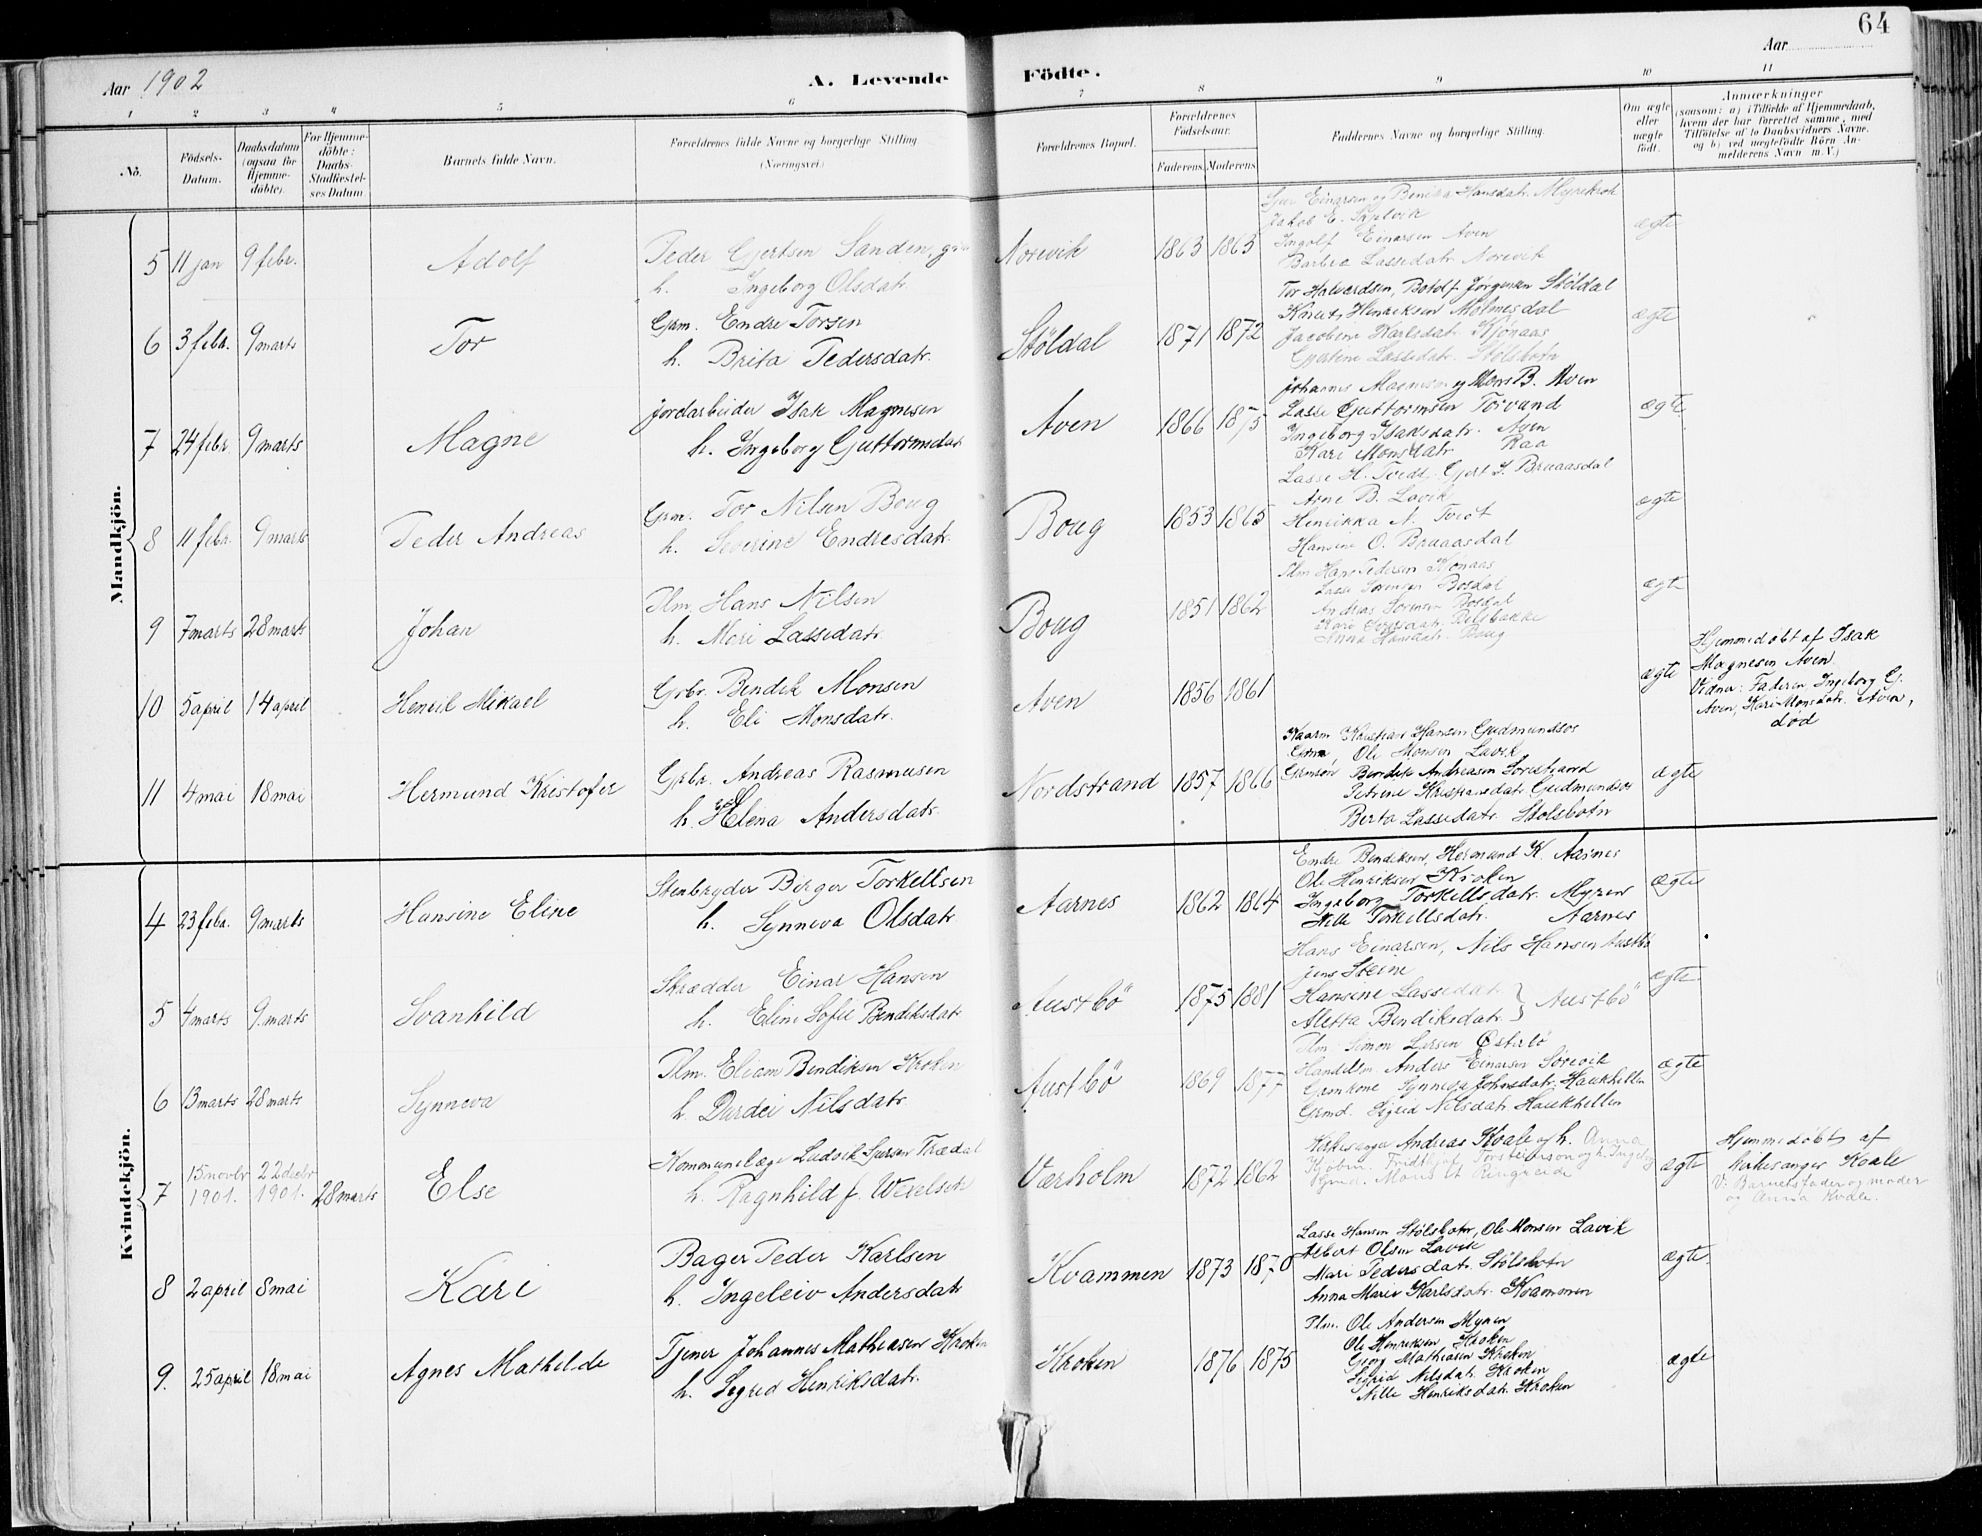 64
Aar 1902
A. Levende
Födte.
Aar
1 2 3 4 5 6 7 8 9 10 11
No.
Födsels-
Datum.
Daabsdatum
(ogsaa for
Hjemme-
döbte).
For Hjemme-
döbte:
Daabs-
Stadfæstel-
ses Datum.
Barnets fulde Navn.
Forældrenes fulde Navne og borgerlige Stilling
(Næringsvei.)
Forældrenes Bopæl.
Forældrenes
Födselsaar.
Faderens. Moderens.
Faddernes Navne og borgerlige Stilling.
Om ægte
eller
uægte
født.
Anmærkninger
(saasom: a) i Tilfælde af Hjemmedaab,
hvem der har forrettet samme, med
Tilføielse af to Daabsvidners Navne,
og b) ved uægtefödte Börn An-
melderens Navn m. V.)
Mandkjön.
5 11 jan 9 febr. Adolf
Peder Gjertsen Sanden,
h. Ingeborg Olsdatr.
Norevik 1863 1863
Einarsen og Hansdatr. Myrekrok
Jakob E.
Ingolf Einarsen Aven
Barbra Lassedatr. Norevik
ægte
6 3 febr. 9 marts Tor
Grm. Endre Torsen
h. Brita Pedersdatr.
Stöldal 1871 1872
Tor Halvardsen, Botolf Jørgensen Stöldal
Knut Henriksen Molmesdal
Jacobine Karlsdatr. Kjonaas
Gjertine Lassedatr. Stölsbotn
ægte
7 24 febr 9 marts Magne
Jordarbeider Isak Magnesen
h. Ingeborg Guttormsdatr
Aven 1866 1875
Johannes Magnesen og Mons B. Aven
Lasse Guttormsen Torvund
Ingeborg Isaksdatr. Aven
Kari Monsdatr. Raa
ægte
8 11 febr. 9 marts Peder Andreas
Grm. Tor Nilsen Boug
h. Severine Endresdatr.
Boug 1853 1865
Lasse H. Tvedt, Gjert J. Bruaasdal
Arne B. Lavik
Henrikka N. Tvedt
Hansine O. Bruaasdal
ægte
9 7 marts 28 marts Johan
Plm. Hans Nilsen
h. Mari Lassedatr.
Boug 1851 1862
Plm Hans Pedersen Kjonaas
Lasse Sørensen Bosdal
Andreas Sørensen Bosdal
Anna Hansdatr. Boug
ægte
10 5 april 14 april Henrik Mikael
Grbr. Bendik Monsen
h. Eli Monsdatr.
Aven 1856 1861
ægte
Hjemmedøbt af Isak
Magnesen Aven
Vidner: Faderen, Ingeborg G.
Aven, Kari Monsdatr. Aven,
død
11 4 mai 18 mai Hermund Kristofer
Grbr. Andreas Rasmusen
h. Elena Andersdatr.
Nordstrand 1857 1866
Kristian Hansen Gudmundsos
Ole Monsen Lavik
Grmsøn Bendik Andreasen
Petrine Kristiansdatr. Gudmundsos
Berta Lassedatr. Stölsbotn
ægte
Kvindekjön.
4 23 febr. 9 marts Hansine Eline
Stenbryder Birger Torkellsen
h. Synneva Olsdatr
Aarnes 1862 1864
Endre Bendiksen, Hermund K. Aarnes
Ole Henriksen Kroken
Ingeborg Torkellsdatr. Myren
Torkellsdatr. Aarnes
ægte
5 4 marts 9. marts Svanhild
Skrædder Einar Hansen
h. Eline Sofie Bendiksdatr
Austbö 1875 1881
Hans Einarsen, Nils Hansen Austbö
Jens Steine
Hansine Lassedatr.
Aletta Bendiksdatr. } Austbö
ægte
6 13 marts 28 marts Synneva
Plm. Eliam Bendiksen Kroken
h. Durdei Nilsdatr.
Austbö 1869 1877
Plm. Simon Larsen Österbö
Handelsm. Anders Einarsen Sörevik
Grmkone Synneva Johnsdatr. Haukhellen
Grmd. Sigrid Nilsdatr. Haukhellen
ægte
7 15 novbr 1901. 22 decbr 1901. 28 marts Else
Kommunelæge Ludvik Sjursen Trædal
h. Ragnhild f. Wexelsen
Værholm 1872 1862
Kirkesanger Andreas Kvale og h. Anna
Kjøbm. Fridtljof Torsteinson og h. Ingeborg
Mons Ringereide
ægte
Hjemmedøbt af
kirkesanger Kvale
V: Barnets fader og moder
og Anna Kvale.
8 2 april 8 mai Kari
Bager Peder Karlsen
h. Ingeleiv Andersdatr
Kvammen 1873 1870
Lasse Hansen Stölsbotn, Ole Monsen Lavik
Albert Olsen Lavik
Mari Pedersdatr. Stölsbotn
Anna Marie Karlsdatr. Kvammen
ægte.
9. 25 april 18 mai Agnes Mathilde
Tjener Johannes Mathiasen Kroken
h. Sigrid Henriksdatr.
Kroken 1876 1875
Plm. Ole Andersen Myren
Ole Henriksen Kroken
Georg Mathiasen Kroken
Sigrid Nilsdatr. Kroken
Nille Henriksdatr. Kroken
ægte